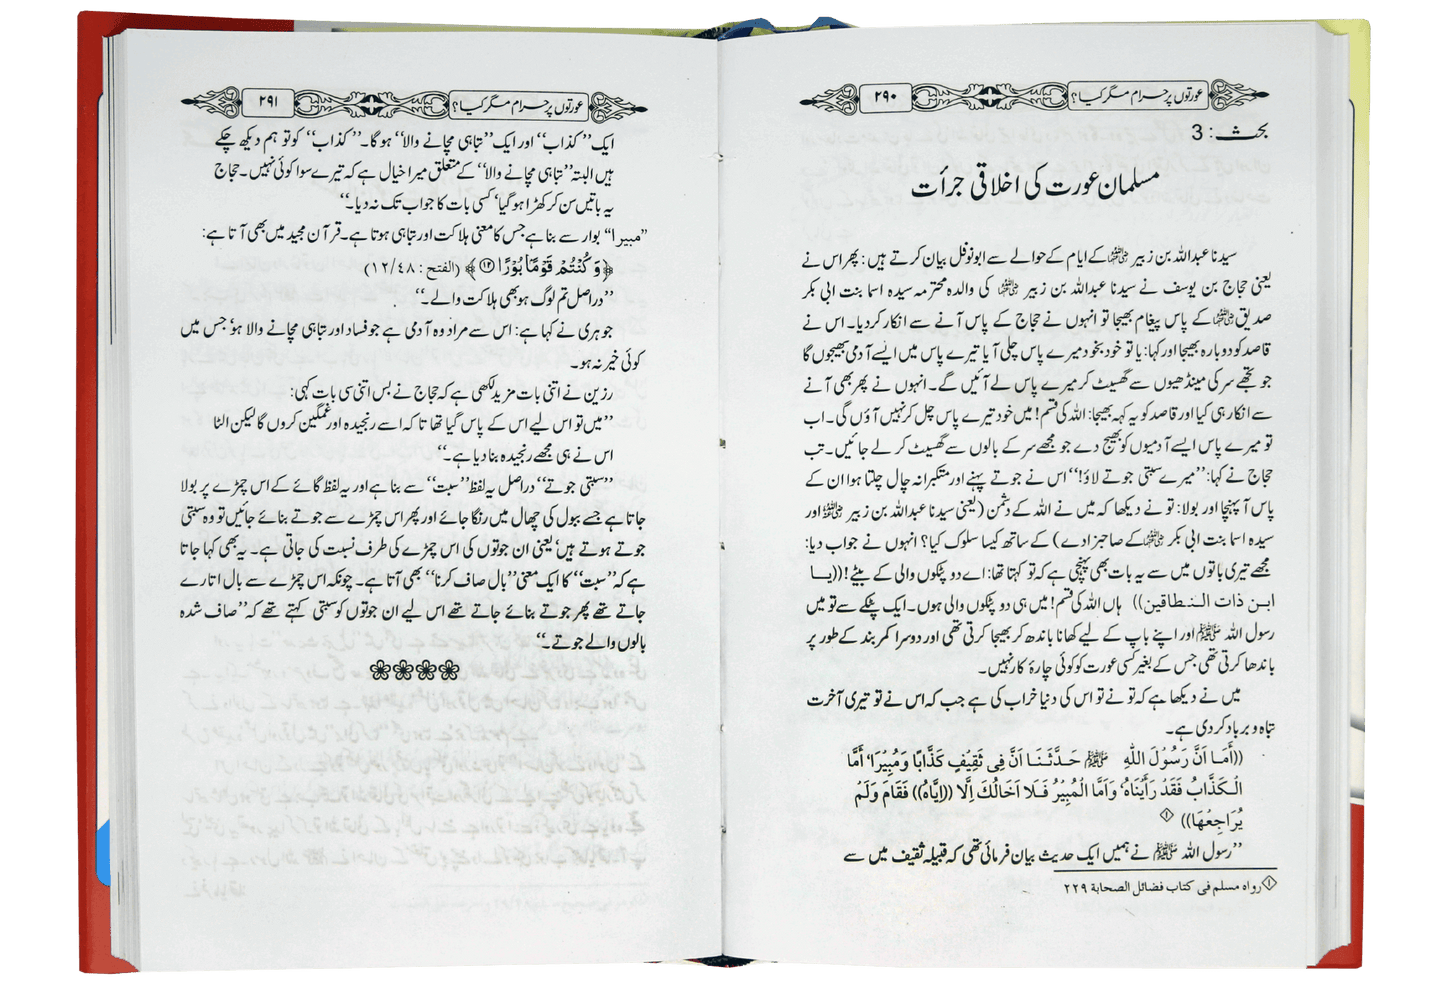 عورتوں پر حرام مگر کیا؟
۲۹۰
بحث : 3
مسلمان عورت کی اخلاقی جرأت
سیدنا عبداللہ بن زبیر ﷜ کے ایام کے حوالے سے ابو نوفل بیان کرتے ہیں: پھر اس نے
یعنی حجاج بن یوسف نے سیدنا عبداللہ بن زبیر ﷜ کی والدہ محترمہ سیدہ اسما بنت ابی بکر
صدیق ﷠ کے پاس پیغام بھیجا تو انہوں نے حجاج کے پاس آنے سے انکار کر دیا۔ اس نے
قاصد کو دوبارہ بھیجا اور کہا: یا تو خود بخود میرے پاس چلی آ یا تیرے پاس میں ایسے آدمی بھیجوں گا
جو تجھے سر کی مینڈھیوں سے گھسیٹ کر میرے پاس لے آئیں گے۔ انہوں نے پھر بھی آنے
سے انکار ہی کیا اور قاصد کو یہ کہہ بھیجا: اللہ کی قسم! میں خود تیرے پاس چل کر نہیں آؤں گی۔ اب
تو میرے پاس ایسے آدمیوں کو بھیج دے جو مجھے سر کے بالوں سے گھسیٹ کر لے جائیں۔ تب
حجاج نے کہا: ’’میرے سبتی جوتے لاؤ!‘‘ اس نے جوتے پہنے اور متکبرانہ چال چلتا ہوا ان کے
پاس آ پہنچا اور بولا: تو نے دیکھا کہ میں نے اللہ کے دشمن (یعنی سیدنا عبداللہ بن زبیر ﷠ اور
سیدہ اسما بنت ابی بکر ﷠ کے صاحبزادے) کے ساتھ کیسا سلوک کیا؟ انہوں نے جواب دیا:
مجھے تیری باتوں میں سے یہ بات بھی پہنچی ہے کہ تو کہتا تھا: اے دو پٹکوں والی کے بیٹے! ((یا
ابن ذات النطاقین)) ہاں اللہ کی قسم! میں ہی دو پٹکوں والی ہوں۔ ایک پٹکے سے تو میں
رسول اللہ ﷺ اور اپنے باپ کے لیے کھانا باندھ کر بھیجا کرتی تھی اور دوسرا کمر بند کے طور پر
باندھا کرتی تھی جس کے بغیر کسی عورت کو کوئی چارۂ کار نہیں۔
میں نے دیکھا ہے کہ تو نے تو اس کی دنیا خراب کی ہے جب کہ اس نے تو تیری آخرت
تباہ و برباد کر دی ہے۔
((أَمَا اَنَّ رَسُوْلَ اللّٰهِ ﷺ حَدَّثَنَا اَنَّ فِی ثَقِیْفٍ كَذَّابًا وَمُبِیْرًا‘ أَمَّا
الْكَذَّابُ فَقَدْ رَأَیْنَاهُ‘ وَاَمَّا الْمُبِیْرُ فَلَا اَخَالُكَ اِلَّا ((اِیَّاهُ)) فَقَامَ وَلَمْ
یُرَاجِعْهَا)) ①
’’رسول اللہ ﷺ نے ہمیں ایک حدیث بیان فرمائی تھی کہ قبیلہ ثقیف میں سے
① رواہ مسلم فی کتاب فضائل الصحابة ۲۲۹
عورتوں پر حرام مگر کیا؟
۲۹۱
ایک ’’کذاب‘‘ اور ایک ’’تباہی مچانے والا‘‘ ہوگا۔ ’’کذاب‘‘ کو تو ہم دیکھ چکے
ہیں البتہ ’’تباہی مچانے والا‘‘ کے متعلق میرا خیال ہے کہ تیرے سوا کوئی نہیں۔ حجاج
یہ باتیں سن کر کھڑا ہو گیا‘ کسی بات کا جواب تک نہ دیا۔‘‘
’’مبیرا‘‘ بوار سے بنا ہے جس کا معنی ہلاکت اور تباہی ہوتا ہے۔ قرآن مجید میں بھی آتا ہے:
﴿وَ كُنْتُمْ قَوْمًۢا بُوْرًا ⑫﴾ (الفتح : ۱۲/۴۸)
’’دراصل تم لوگ ہو بھی ہلاکت والے۔‘‘
جوہری نے کہا ہے: اس سے مراد وہ آدمی ہے جو فساد اور تباہی مچانے والا ہو‘ جس میں
کوئی خیر نہ ہو۔
رزین نے اتنی بات مزید لکھی ہے کہ حجاج نے بس اتنی سی بات کہی:
’’میں تو اس لیے اس کے پاس گیا تھا تاکہ اسے رنجیدہ اور غمگین کروں گا لیکن الٹا
اس نے ہی مجھے رنجیدہ بنا دیا ہے۔‘‘
’’سبتی جوتے‘‘ دراصل یہ لفظ ’’سبت‘‘ سے بنا ہے اور یہ لفظ گائے کے اس چمڑے پر بولا
جاتا ہے جسے ببول کی چھال میں رنگا جائے اور پھر اس چمڑے سے جوتے بنائے جائیں تو وہ سبتی
جوتے ہوتے ہیں‘ یعنی ان جوتوں کی اس چمڑے کی طرف نسبت کی جاتی ہے۔ یہ بھی کہا جاتا
ہے کہ ’’سبت‘‘ کا ایک معنی ’’بال صاف کرنا‘‘ بھی آتا ہے۔ چونکہ اس چمڑے سے بال اتارے
جاتے تھے پھر جوتے بنائے جاتے تھے اس لیے ان جوتوں کو سبتی کہتے تھے کہ ’’صاف شدہ
بالوں والے جوتے۔‘‘